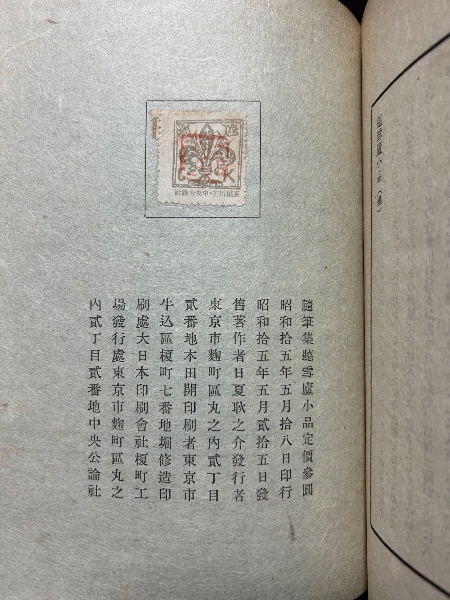 隨筆集聽雪廬小品定價參圓
昭和拾五年五月拾八日印行
昭和拾五年五月貳拾五日發
售著作者日夏耿之介發行者
東京市麴町區丸之內貳丁目
貳番地木田開印刷者東京市
牛込區榎町七番地堀修造印
刷處大日本印刷會社榎町工
場發行處東京市麴町區丸之
內貳丁目貳番地中央公論社